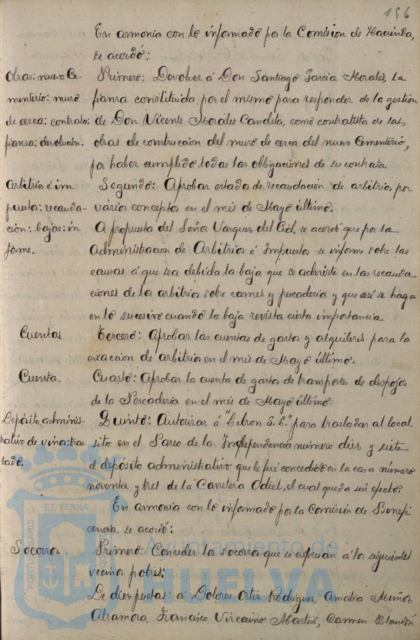 156
En armonía con lo informado por la Comisión de Hacienda,
se acordó:
Obras: nuevo Ce-
menterio: muro
de cerca: contrato:
fianza: devolución.
Primero: Devolver á Don Santiago García Morales, la
fianza constituida por el mismo para responder de la gestión
de Don Vicente Morales Candela, como contratista de las
obras de construcción del muro de cerca del nuevo Cementerio,
por haber cumplido todas las obligaciones de su contrata.
Arbitrios é im-
puestos: recauda-
ción: bajas: in-
forme.
Segundo: Aprobar estado de recaudación de arbitrios por
varios conceptos en el mes de Mayo último.
A propuesta del Señor Vargues del Cid, se acordó que por la
Administración de Arbitrios é Impuestos se informe sobre las
causas á que sea debida la baja que se advierte en las recauda-
ciones de los arbitrios sobre carnes y pescadería y que así se haga
en lo sucesivo cuando la baja revista cierta importancia.
Cuentas
Tercero: Aprobar las cuentas de gastos y alquileres para la
exacción de arbitrios en el mes de Mayo último.
Cuenta.
Cuarto: Aprobar la cuenta de gastos de transportes de despojos
de la Pescadería en el mes de Mayo último.
Depósito adminis-
trativo de vinos: tras-
lado.
Quinto: Autorizar á S. E. para trasladar al local
sito en el Paseo de la Independencia número diez y siete
el depósito administrativo que le fué concedido en la casa número
noventa y tres de la Carretera Odiel, el cual queda sin efecto.
En armonía con lo informado por la Comisión de Benefi-
cencia, se acordó:
Socorros
Primero: Conceder los socorros que se expresan á los siguientes
vecinos pobres:
De diez pesetas: á Dolores Ortiz Rodríguez, Amalia Muñoz
Altamora, Francisco Vizcaino Martín, Carmen
Ayuntamiento de
HUELVA
PORTUS MARIS
ET TERRAE